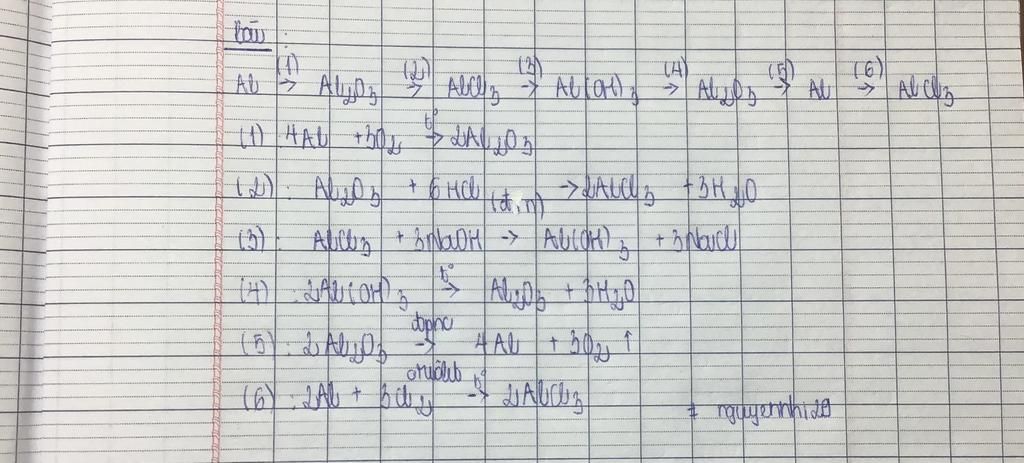 Bài :
Al (1)→ Al₂O₃ (2)→ AlCl₃ (3)→ Al(OH)₃ (4)→ Al₂O₃ (5)→ Al (6)→ AlCl₃
(1) 4Al + 3O₂ t°→ 2Al₂O₃
(2) : Al₂O₃ + 6HCl (đ,n) → 2AlCl₃ + 3H₂O
(3) : AlCl₃ + 3NaOH → Al(OH)₃ + 3NaCl
(4) : 2Al(OH)₃ t°→ Al₂O₃ + 3H₂O
(5) : 2Al₂O₃ đpnc→ 4Al + 3O₂ ↑
(6) : 2Al + 3Cl₂ t°→ 2AlCl₃
# nguyennhi29